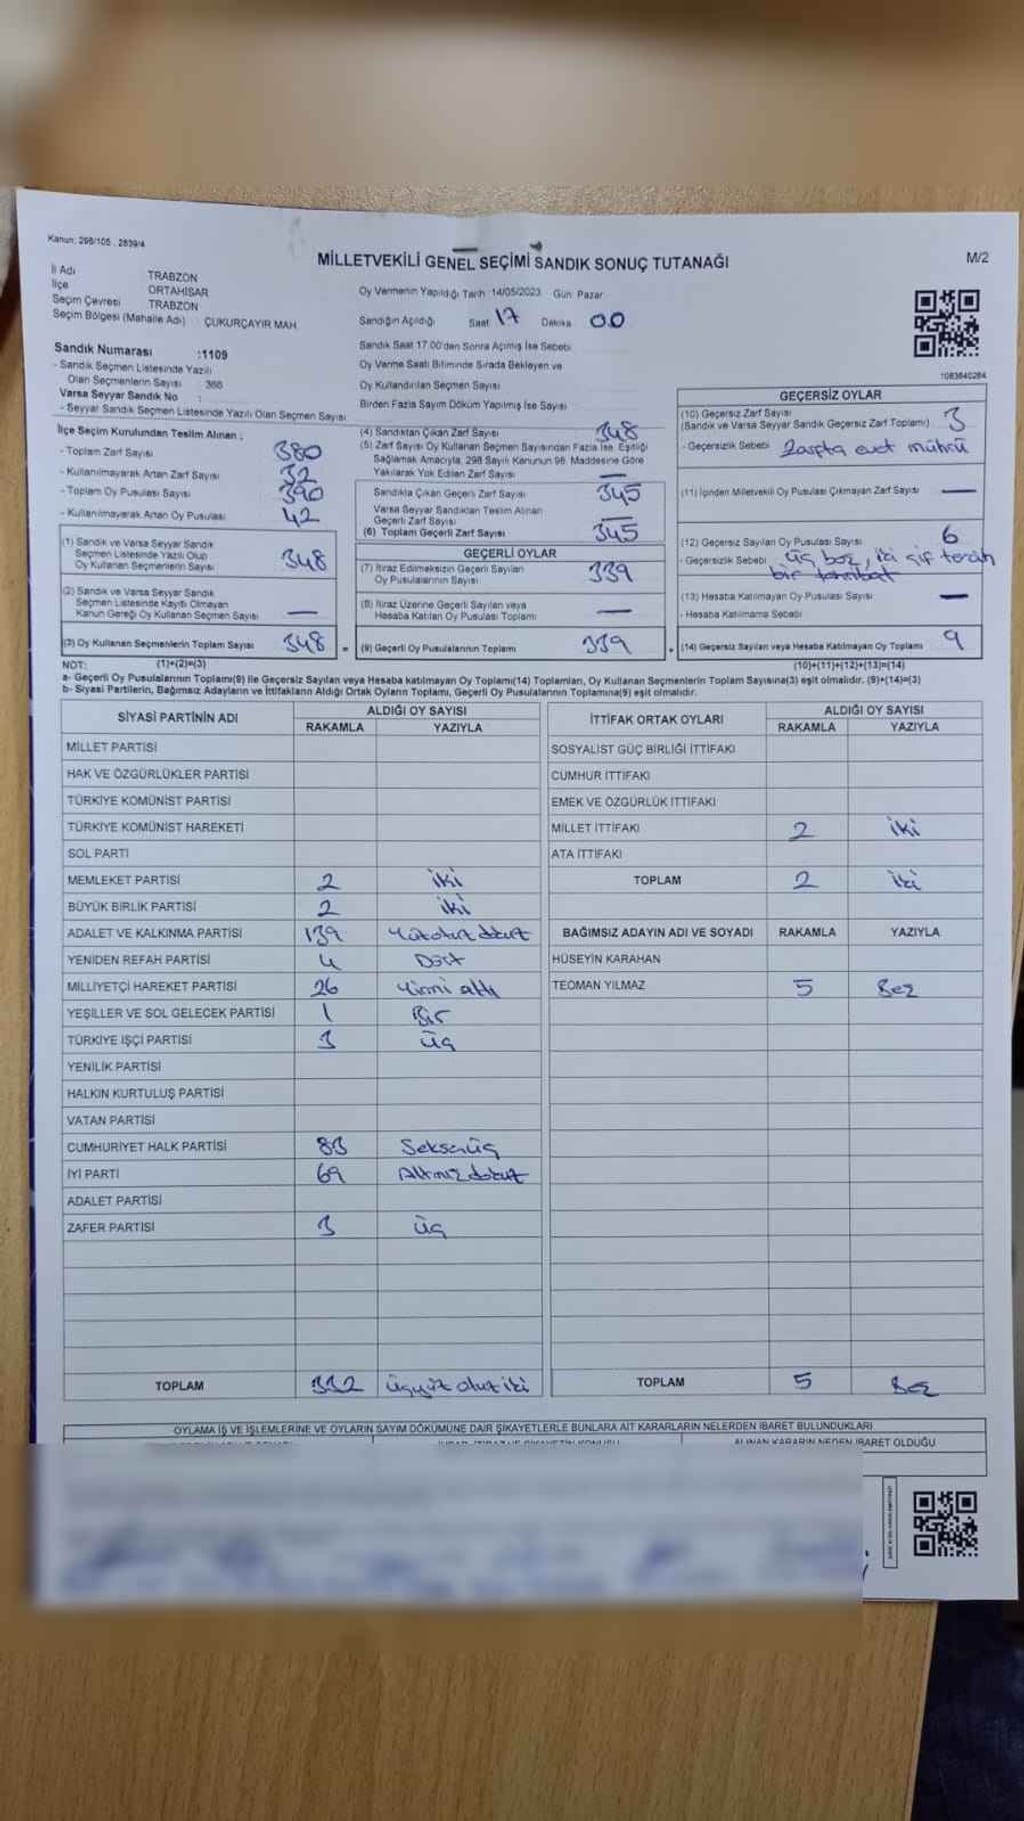 Kanun: 298/105, 2839/4
MİLLETVEKİLİ GENEL SEÇİMİ SANDIK SONUÇ TUTANAĞI
M/2
İl Adı TRABZON
İlçe ORTAHİSAR
Seçim Çevresi TRABZON
Seçim Bölgesi (Mahalle Adı) : ÇUKURÇAYIR MAH.
Oy Vermenin Yapıldığı Tarih 14/05/2023 Gün: Pazar
Sandığın Açıldığı Saat 17 Dakika 00
Sandık Saat 17.00'den Sonra Açılmış İse Sebebi
Oy Verme Saati Bitiminde Sırada Bekleyen ve
Oy Kullandırılan Seçmen Sayısı
Birden Fazla Sayım Döküm Yapılmış İse Sayısı
1083640284
Sandık Numarası :1109
- Sandık Seçmen Listesinde Yazılı
Olan Seçmenlerin Sayısı :
Varsa Seyyar Sandık No :
- Seyyar Sandık Seçmen Listesinde Yazılı Olan Seçmen Sayısı
İlçe Seçim Kurulundan Teslim Alınan :
- Toplam Zarf Sayısı 380
- Kullanılmayarak Artan Zarf Sayısı 32
- Toplam Oy Pusulası Sayısı 390
- Kullanılmayarak Artan Oy Pusulası 42
(1) Sandık ve Varsa Seyyar Sandık
Seçmen Listesinde Yazılı Olup
Oy Kullanan Seçmenlerin Sayısı 348
(2) Sandık ve Varsa Seyyar Sandık
Seçmen Listesinde Kayıtlı Olmayan
Kanun Gereği Oy Kullanan Seçmen Sayısı —
(3) Oy Kullanan Seçmenlerin Toplam Sayısı 348
(4) Sandıktan Çıkan Zarf Sayısı 348
(5) Zarf Sayısı Oy Kullanan Seçmen Sayısından Fazla İse, Eşitliği
Sağlamak Amacıyla, 298 Sayılı Kanunun 98. Maddesine Göre
Yakılarak Yok Edilen Zarf Sayısı —
Sandıkta Çıkan Geçerli Zarf Sayısı 345
Varsa Seyyar Sandıktan Teslim Alınan
Geçerli Zarf Sayısı —
(6) Toplam Geçerli Zarf Sayısı 345
GEÇERLİ OYLAR
(7) İtiraz Edilmeksizin Geçerli Sayılan
Oy Pusulalarının Sayısı 339
(8) İtiraz Üzerine Geçerli Sayılan veya
Hesaba Katılan Oy Pusulası Toplamı —
= (9) Geçerli Oy Pusulalarının Toplamı 339
GEÇERSİZ OYLAR
(10) Geçersiz Zarf Sayısı
(Sandık ve Varsa Seyyar Sandık Geçersiz Zarf Toplamı) 3
- Geçersizlik Sebebi Zarfta evet mührü
(11) İçinden Milletvekili Oy Pusulası Çıkmayan Zarf Sayısı —
(12) Geçersiz Sayılan Oy Pusulası Sayısı 6
- Geçersizlik Sebebi üç boş, iki çif tercih
bir tahribat
(13) Hesaba Katılmayan Oy Pusulası Sayısı —
- Hesaba Katılmama Sebebi
+ (14) Geçersiz Sayılan veya Hesaba Katılmayan Oy Toplamı 9
NOT: (1)+(2)=(3)
(10)+(11)+(12)+(13)=(14)
a- Geçerli Oy Pusulalarının Toplamı(9) ile Geçersiz Sayılan veya Hesaba katılmayan Oy Toplamı(14) Toplamları, Oy Kullanan Seçmenlerin Toplam Sayısına(3) eşit olmalıdır. (9)+(14)=(3)
b- Siyasi Partilerin, Bağımsız Adayların ve İttifakların Aldığı Ortak Oyların Toplamı, Geçerli Oy Pusulalarının Toplamına(9) eşit olmalıdır.
SİYASİ PARTİNİN ADI ALDIĞI OY SAYISI
RAKAMLA YAZIYLA
MİLLET PARTİSİ
HAK VE ÖZGÜRLÜKLER PARTİSİ
TÜRKİYE KOMÜNİST PARTİSİ
TÜRKİYE KOMÜNİST HAREKETİ
SOL PARTİ
MEMLEKET PARTİSİ 2 iki
BÜYÜK BİRLİK PARTİSİ 2 iki
ADALET VE KALKINMA PARTİSİ 139 Yüzotuz dokuz
YENİDEN REFAH PARTİSİ 4 Dört
MİLLİYETÇİ HAREKET PARTİSİ 26 Yirmi altı
YEŞİLLER VE SOL GELECEK PARTİSİ 1 Bir
TÜRKİYE İŞÇİ PARTİSİ 3 üç
YENİLİK PARTİSİ
HALKIN KURTULUŞ PARTİSİ
VATAN PARTİSİ
CUMHURİYET HALK PARTİSİ 83 Seksenüç
İYİ PARTİ 69 Altmışdokuz
ADALET PARTİSİ
ZAFER PARTİSİ 3 üç
TOPLAM 332 üçyüz otuz iki
İTTİFAK ORTAK OYLARI ALDIĞI OY SAYISI
RAKAMLA YAZIYLA
SOSYALİST GÜÇ BİRLİĞİ İTTİFAKI
CUMHUR İTTİFAKI
EMEK VE ÖZGÜRLÜK İTTİFAKI
MİLLET İTTİFAKI 2 iki
ATA İTTİFAKI
TOPLAM 2 iki
BAĞIMSIZ ADAYIN ADI VE SOYADI RAKAMLA YAZIYLA
HÜSEYİN KARAHAN
TEOMAN YILMAZ 5 Beş
TOPLAM 5 Beş
OYLAMA İŞ VE İŞLEMLERİNE VE OYLARIN SAYIM DÖKÜMÜNE DAİR ŞİKAYETLERLE BUNLARA AİT KARARLARIN NELERDEN İBARET BULUNDUKLARI
ALINAN KARARIN NEDEN İBARET OLDUĞU